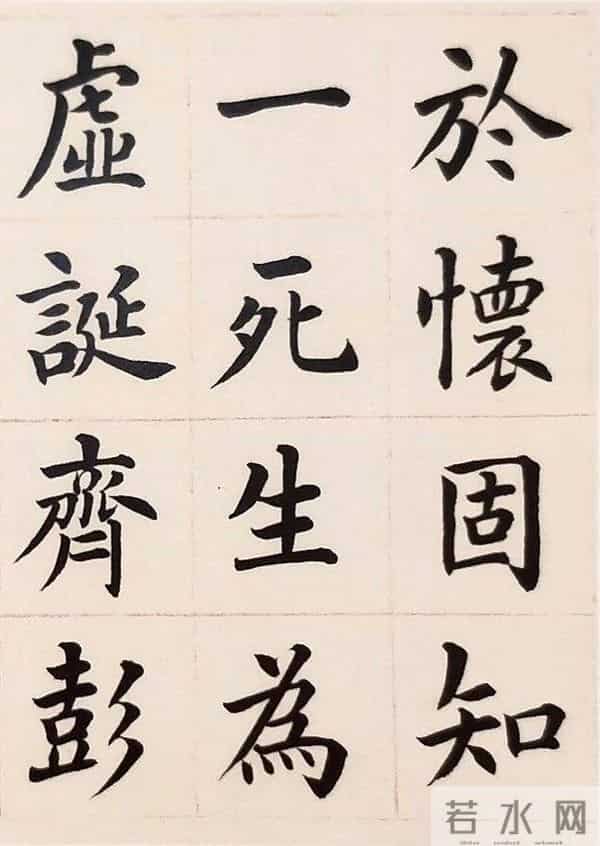 於懷固知
一死生為
虛誕齊彭
若水网